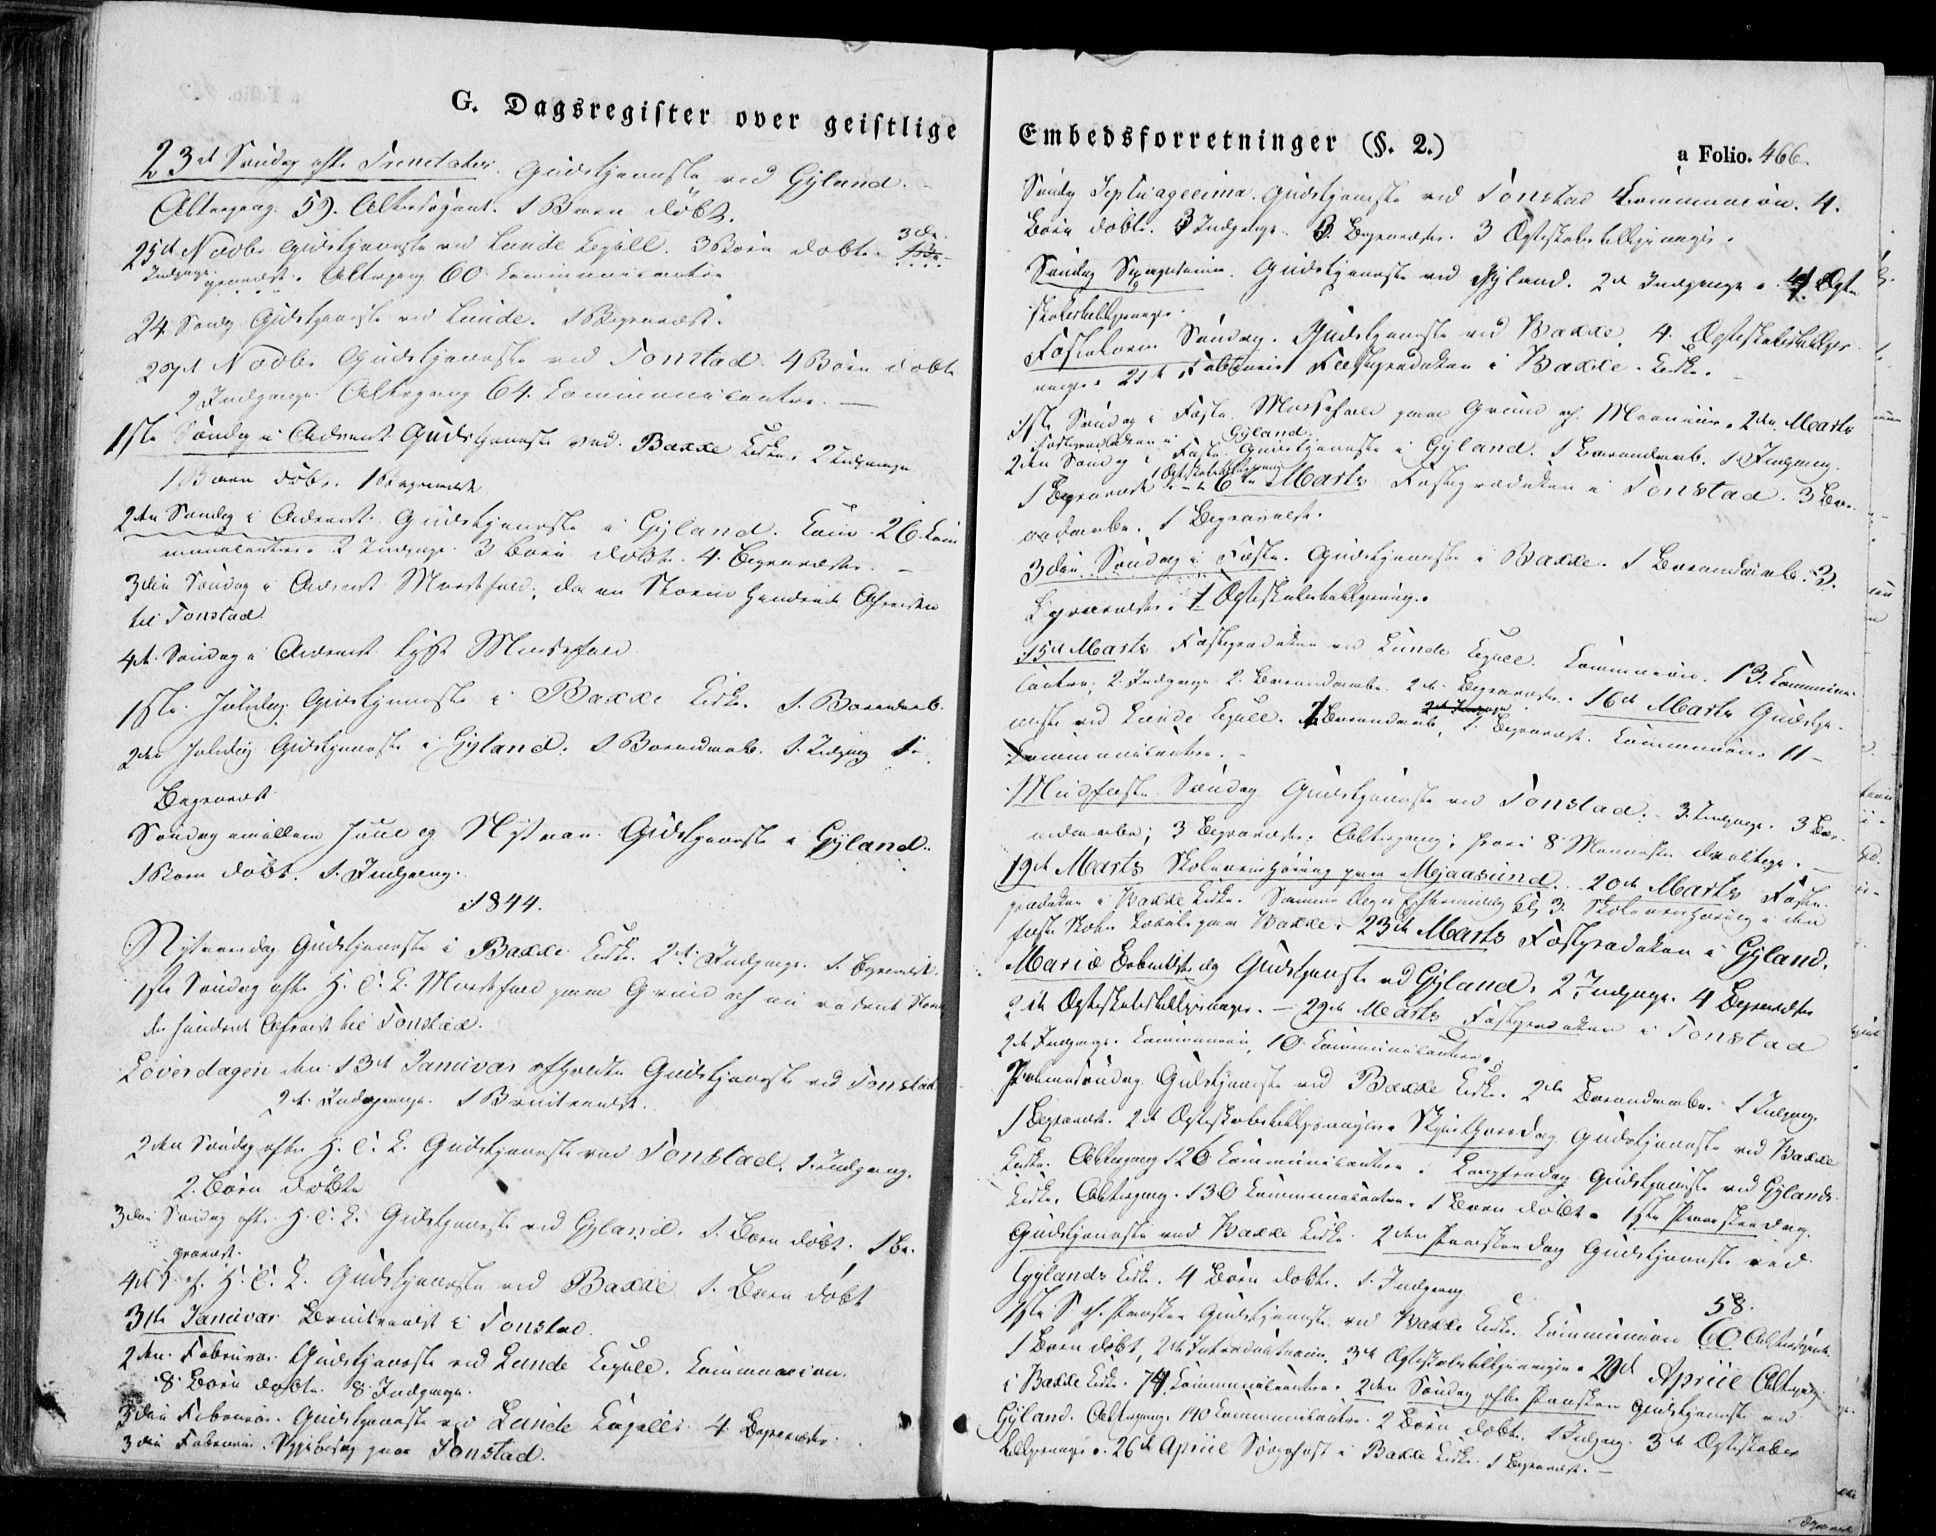 G. Dagsregister over geistlige
23de Søndag efter Trinitatis. Gudstjeneste ved Gyland.
Altergang. 59. Altergjæst. 1 Barn døbt.
25de Novbr Gudstjeneste ved Lunde Capell. 3 Børn døbte. 3 Be-
Indgange. gravelse. Altergang 60 Communicantere
24 Søndag Gudstjeneste ved Lunde. 1 Begravelse.
Novbr Gudstjeneste ved Tonstad. 4 Børn døbte
2 Indgange. Altergang 64. Communicantere. —
1ste Søndag i Advent Gudstjeneste ved Bakke Kirke. 2 Indgange
1 Barn døbt. 1 Begravelse
2den Søndag i Advent. Gudstjeneste i Gyland. Com. 26. Com
municantere. 2 Indgange. 3 Børn døbte. 4. Begravelser. —
3die Søndag i Advent Messefald, da en Storm hindrede Afreisen
til Tonstad.
4de Søndag i Advent lyst Messefald
1ste Juledag Gudstjeneste i Bakke Kirke. 1. Barnedaab.
2den Juledag Gudstjeneste i Gyland. 1 Barnedaab. 1. Indgang 1.
Begravelse
Søndag imellem Juul og Nytaar. Gudstjeneste i Gyland.
1 Barn døbt. 1. Indgang.
1844.
Nytaarsdag Gudstjeneste i Bakke Kirke. 2de Indgange. 1. Begravelse.
1ste Søndag efter H. 3. K. Messefald paa Grund af
hindret Afreise til Tonstad.
Løverdagen den 13de Januar afholdtes Gudstjeneste ved Tonstad
2de Indgange. 1 Brudevielse.
2den Søndag efter H. 3. K. Gudstjeneste ved Tonstad. 1. Indgang.
2. Børn døbte
3die Søndag efter H. 3. K. Gudstjeneste ved Gyland. 1. Barn døbt. 1 Be-
gravelse.
4de S. ef. H. 3. K. Gudstjeneste ved Bakke 1. Barn døbt
Januar Brudevielse i Tonstad.
2den Februar Gudstjeneste ved Lunde Capell. Communion.
8 Børn døbte. 8 Indgange.
3die Februar. Gudstjeneste ved Lunde Capell. 4 Begravelser.
3die Februar. Sygebesøg paa Tonstad.
Embedsforretninger (§. 2.)
a Folio. 466.
Søndag Septuagesima. Gudstjeneste ved Tonstad Communion. 4.
Børn døbte. 3 Indgange. 3. Begravelser. 3 Ægteskabstillysninger.
Søndag Sexagesima. Gudstjeneste ved Gyland. 2de Indgange. Ægte
skabstillysninger.
Fastelavns Søndag. Gudstjeneste ved Bakke. 4. Ægteskabstillys-
ninger. 21de Februar Fasteprædiken i Bakke Kirke. —
1ste Søndag i Faste. Messefald paa Grund af . 2den Marts
Fasteprædiken i Gyland.
2den Søndag i Faste. Gudstjeneste i Gyland. 1 Barnedaab. 1. Indgang.
1 Begravelse. 1 Ægteskabstillysning — 6te Marts Fasteprædiken i Tonstad. 3 Bar-
nedaabe. 1 Begravelse.
3die Søndag i Faste. Gudstjeneste i Bakke. 1 Barnedaab. 3.
Begravelser. 1 Ægteskabstillysning.
15de Marts Fasteprædiken ved Lunde Capell. Communion. 13. Communi-
cantere, 2. Indgange. 2. Barnedaabe. 2de Begravelser. 16de Marts Gudstje-
neste ved Lunde Capell. 1 Barnedaab, 1. Begravelse. Communion 11 —
Communicantere. —
Midfaste Søndag Gudstjeneste ved Tonstad. — 3. Indgange. 3 Bar-
nedaabe; 3 Begravelser. Altergang; hvori 8 Mennesker deeltoge. —
19de Marts Skoleexamen paa Mjaasund. 20de Marts Faste-
prædiken i Bakke Kirke. Samme Dags Eftermiddag Kl 3. i den
faste Skoles Locale paa Bakke. 23de Marts Fasteprædiken i Gyland.
Mariæ Bebudelses dag Gudstjeneste ved Gyland. 2 Indgange. 4 Begravelser
2de Ægteskabstillysninger. — 29de Marts Fasteprædiken i Tonstad
2de Indgange. Communion, 10 Communicantere.
Palmesøndag Gudstjeneste ved Bakke Kirke. 2de Barnedaabe. 1 Indgang.
1 Begravelse. 2de Ægteskabstillysninger. Skjærthorsdag Gudstjeneste ved Bakke
Kirke. Altergang 126 Communicantere. Langfredag Gudstjeneste ved Gylands
Kirke. Altergang. 130 Communicantere. 1 Barn døbt. 1ste Paaskedag.
Gudstjeneste ved Bakke Kirke. 2den Paaskedag Gudstjeneste ved
Gylands Kirke. 4 Børn døbte. 1. Indgang
1ste S. ef. Paaske Gudstjeneste ved Bakke Kirke. Communion 58. 60 Altergjæster
1 Barn døbt, 2de Introductioner. 3de Ægteskabstillysninger. Apriil Altergang
i Bakke Kirke. 74 Communicantere. 2den Søndag efter Paaske Gudstjeneste ved
Gyland. Altergang 140 Communicantere. 2 Børn døbte. 1 Indgang. 3de Ægteskabs
tillysninger. 26de Apriil i Bakke Kirke. 1 Begravelse. —